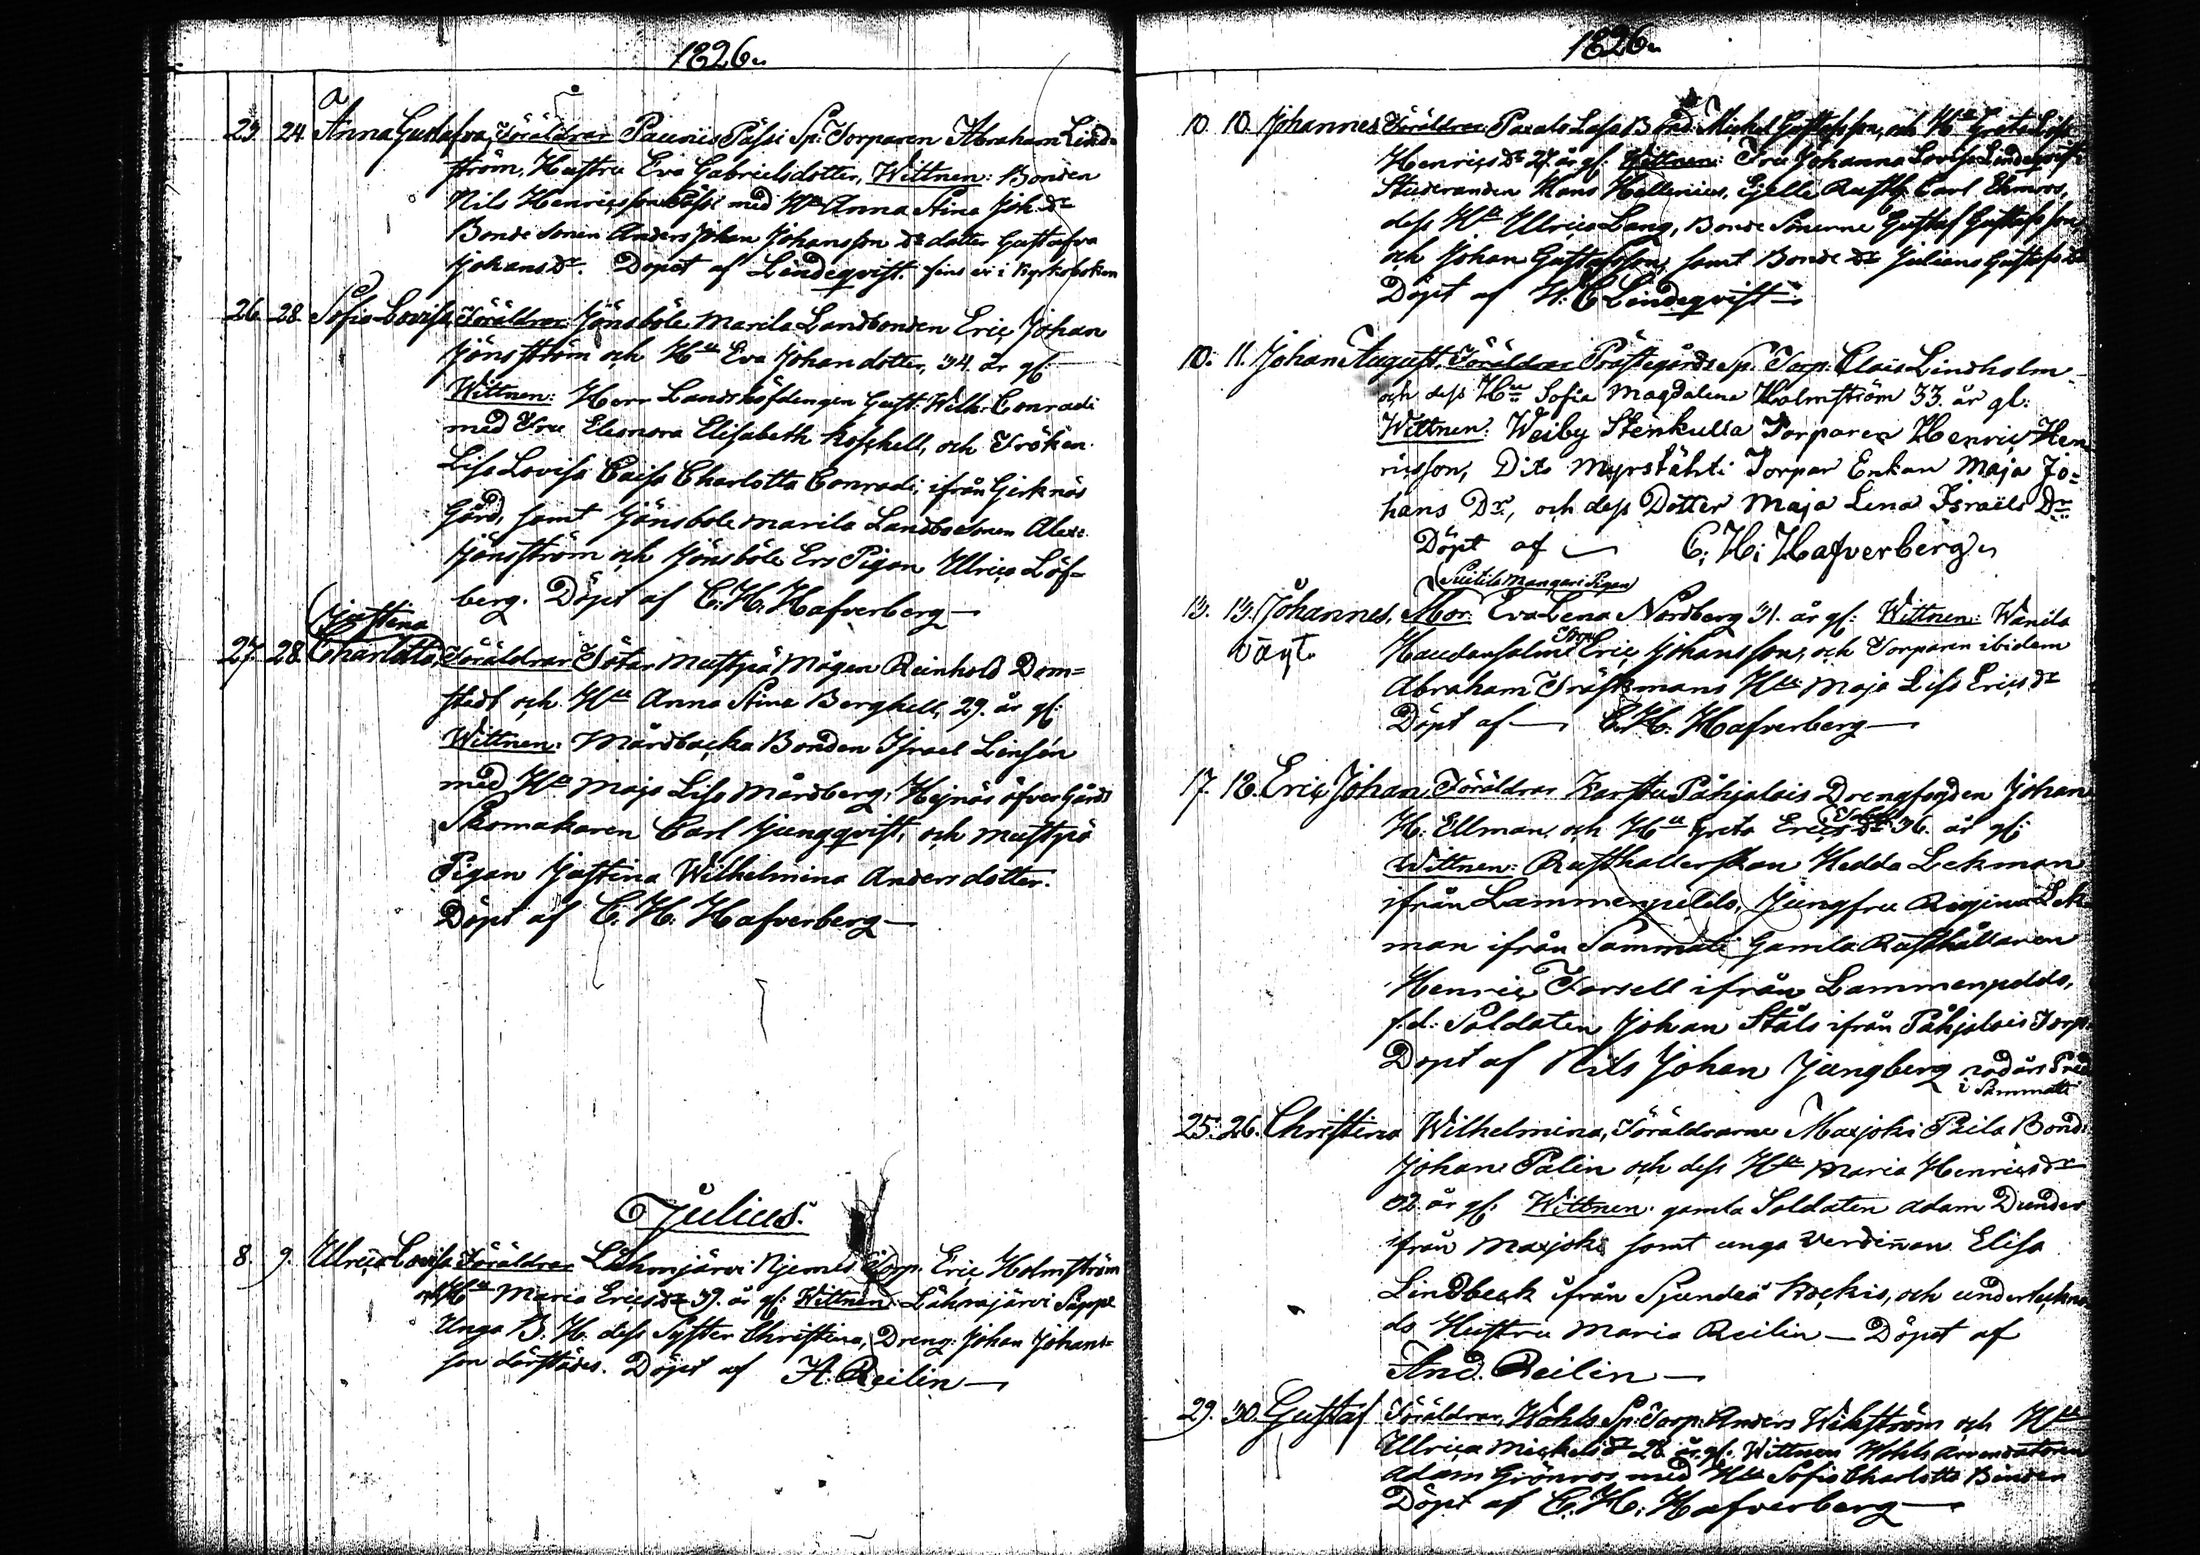 1826.
a
23 24 Anna Gustafva, Föräldrar Pauniis Pässi Sp. Torparen Abraham Lind=
ström, Hustru Eva Gabrielsdotter, Wittnen: Bonden
Nils Henricsson Pässi med Hu Anna Stina Joh. Dr
Bonde Sonen Anders Johan Johansson Do dotter Gustafva
Johans Dr. Döpt af Lindeqvist. fins ei i Kyrkoboken
26 28 Sofia Lovisa Föräldrar Jönsböle Marila Landbonden Eric Johan
Jönsström och Hu Eva Johandotter, 34. år gl:
Wittnen: Herr Landshöfdingen Gust: Wilh: Conradi
med Fru Eleonora Elisabeth Roschell, och Fröken
Lisa Lovisa Caisa Charlotta Conradi, ifrån Gerknäs
Gård, samt Jönsbole Marila Landbo Sonen Alex:
Jönsström och Jönsböle Ers Pigan Ulrica Löf=
berg. Döpt af C. H. Hafverberg —
(Justina
27. 28 Charlotta, Föräldrar Mustjo Mågen Reinhold Dom=
stedt och Hu Anna Stina Berghell, 29. år gl:
Wittnen: Mårdbacka Bonden Israel Linsén
med Hu Maja Lisa Mårdberg, Hejnäs öfver Gårds
Skomakaren Carl Ljungqvist, och Mustjo
Pigan Justina Wilhelmina Andersdotter.
Döpt af C. H. Hafverberg —
Julius.
8. 9. Ulrica Lovisa Föräldrar Lohmjärvi Njemis Torp. Eric Holmström
och Hu Maria Erics Dr 39. år gl: Wittnen: Lahmajärvi Seppä
Unga B. H. dess Syster Christina, Dreng: Johan Johans=
son därstädes. Döpt af A. Reilin —
1826.
10 10 Johannes Föräldrar Paxalo Lassa Bond. Michel Gustafsson, och Hu Greta Lisa
Henrics Dr 27. år gl: Wittnen: Fru Johanna Lovisa Lindeqvist
Studeranden Hans Hellenius, Gjelle Rusth. Carl Ekmoos,
dess Hu Ulrica Lang, Bonde Sönerne Gustaf Gustafsson,
och Johan Gustafsson, samt Bonde Dr Juliana Gustafs Dr
Döpt af H: C Lindeqvist —
10. 11. Johan August, Föräldrar Prästegårds Sp. Torp. Clas Lindholm
och dess Hu Sofia Magdalena Holmström 33. år gl:
Wittnen: Weiby Stenkulla Torparen Henric Hen
ricsson, Dito Myrstähti Torpar Enkan Maja Jo=
hans Dr, och dess Dotter Maja Lena Israels Dr
Döpt af — C: H: Hafverberg.
(Suitila Mangari Pigan
13. 13. Johannes, Mor. Eva Lena Nordberg 31. år gl: Wittnen: Wanila
oägt. Haudansalmi Eric Johansson, och Torparen ibidem
Abraham Träskmans Hu Maja Lisa Erics Dr
Döpt af — C. H. Hafverberg —
17. 18. Eric Johan, Föräldrar Karstu Påhjalais Drengfogden Johan
H: Ellman, och Hu Greta Erics Dr 36. år gl:
Wittnen: Rusthållerskan Hedda Lekman
ifrån Lammenpeldo, Jungfru Regina Lek
man ifrån Sammati Gamla Rusthållaren
Henric Forsell ifrån Lammenpeldo,
f.d. Soldaten Johan Ståls ifrån Påhjalais Torp.
Döpt af Nils Johan Ljungberg nådårs Pred
i Sammatti
25. 26. Christina Wilhelmina, Föräldrarne Maxjoki Peila Bond:
Johan Palin och dess Hu Maria Henrics Dr
32. år gl: Wittnen: gamla Soldaten Adam Dunder
ifrån Maxjoki samt unga Verdiñan Elisa
Lindbeck ifrån Sjundeå Kockis, och underteckna
ds Hustru Maria Reilin — Döpt af
And. Reilin —
29. 30. Gustaf Föräldrar, Wohls Sp: Torp: Anders Wikström och Hu
Ulrica Michels Dr 28 år gl: Wittnen Wohls Arrendatoren
Adam Grönroos med Hu Sofia Charlotta Binden
Döpt af C. H. Hafverberg —